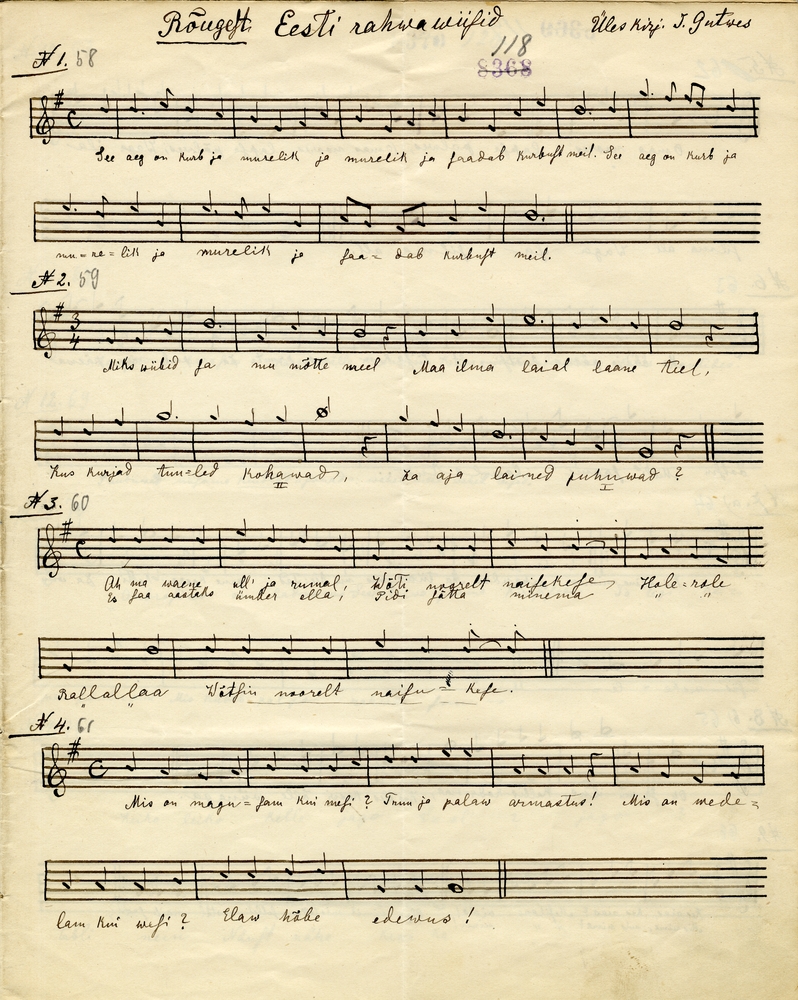 Rõugest. Eesti rahwawiisid Üles kirj. J. Gutwes
118
8368
№ 1. 58
See aeg on kurb ja murelik ja murelik ja saadab kurbust meil. See aeg on kurb ja
mu=re=lik ja murelik ja saa=dab kurbust meil.
№ 2. 59
3
4
Miks wiibid sa mu mõtte meel Maa ilma laial laane teel,
Kus kurjad tuu=led kohawad, Za aja lained puhuwad?
II I
№ 3. 60
Ah ma waene, ull' ja rumal, Wõti noorelt naisekese Hole=role
Es saa aastaks ümber olla, Pidi jätta minema " "
Rallallaa Wõtsin noorelt naisu=kese.
№ 4. 61
Mis on magu=sam kui mesi? Truu ja palaw armastus! Mis on wede=
lam kui wesi? Elaw hõbe edewus!